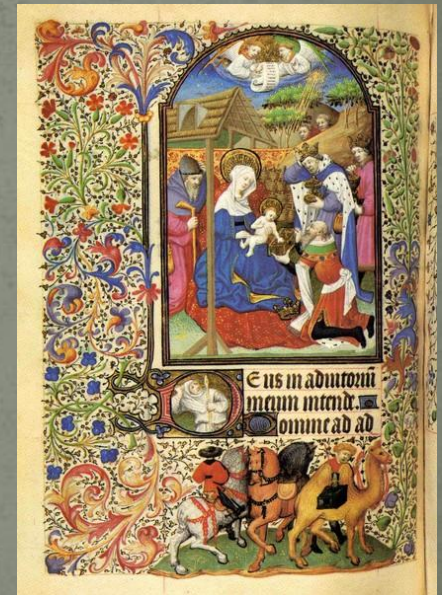 Eus in adiutoriū
meum intende.
Domine ad ad